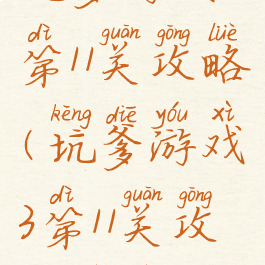 dì guān gōng lüè
第11关攻略
kēng diē yóu xì
(坑爹游戏
dì guān gōng
3第11关攻